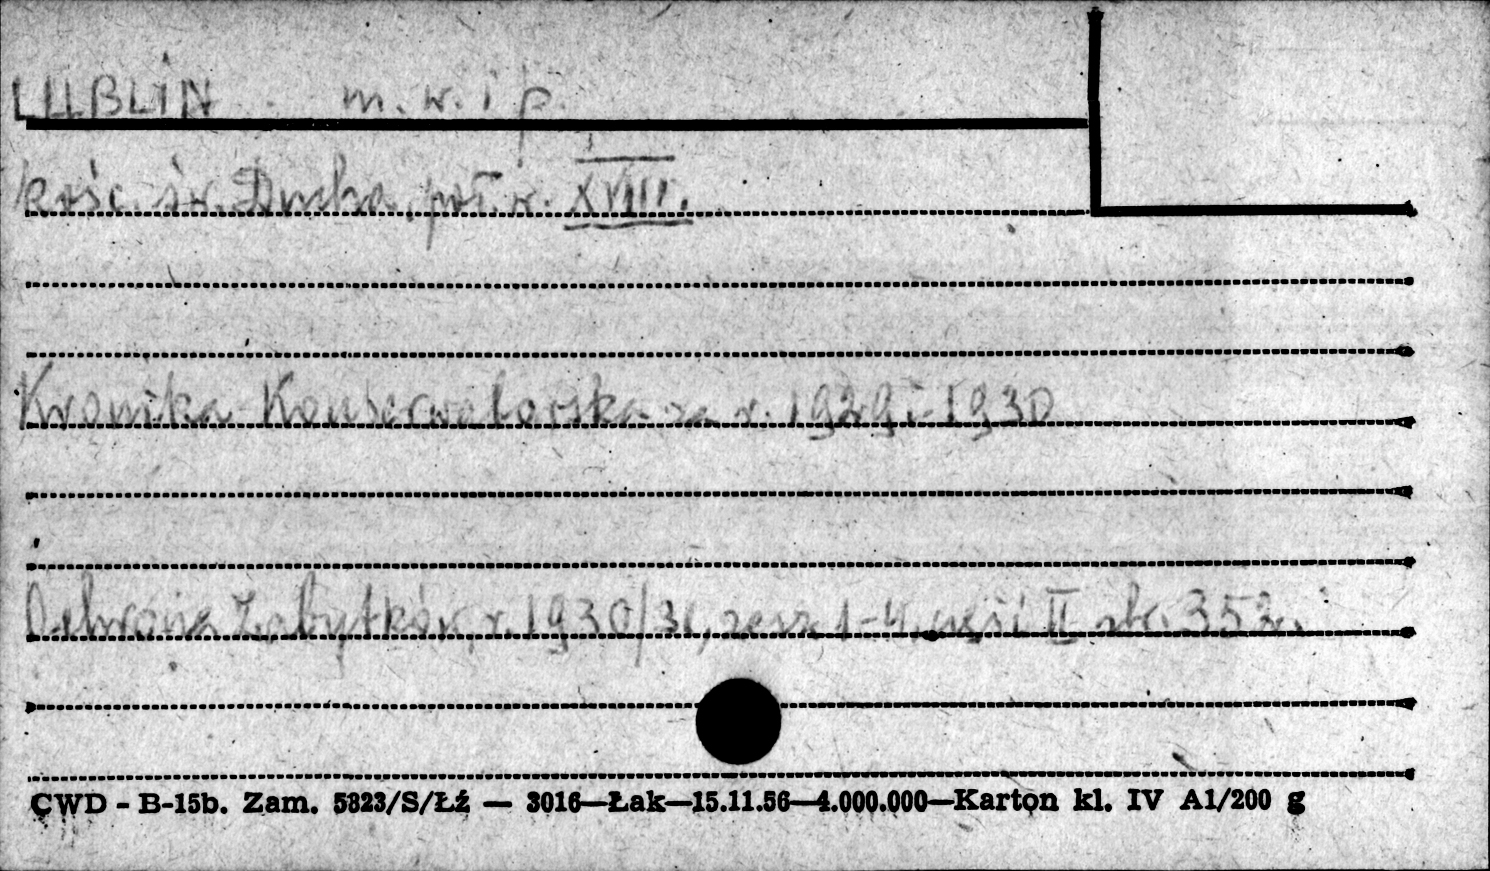 LUBLIN m. w. i p.
kośc. św. Ducha, poł. w. XVIII.
Kronika Konserwatorska za r. 1929 i 1930
Ochrona Zabytków, r. 1930/31, zesz. 1-4, część II str. 352.
CWD - B-15b. Zam. 5823/S/Łź — 3016—Łak—15.11.56—4.000.000—Karton kl. IV A1/200 g